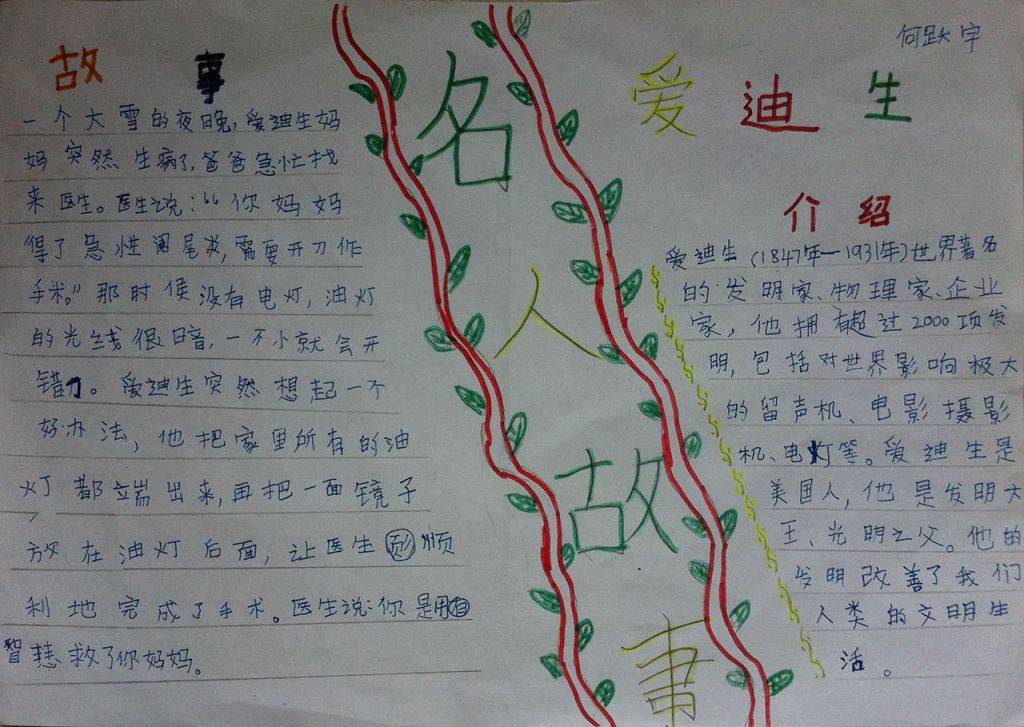 故事
一个大雪的夜晚，爱迪生妈
妈突然生病了，爸爸急忙找
来医生。医生说：“你妈妈
得了急性阑尾炎，需要开刀作
手术。”那时侯没有电灯，油灯
的光线很暗，一不小就会开
错刀。爱迪生突然想起一个
好办法，他把家里所有的油
灯都端出来，再把一面镜子
放在油灯后面，让医生顺
利地完成了手术。医生说：你是用自
智慧救了你妈妈。
名人故事
何跃宇
爱迪生
介绍
爱迪生（1847年—1931年）世界著名
的发明家、物理家、企业
家，他拥有超过2000项发
明，包括对世界影响极大
的留声机、电影摄影
机、电灯等。爱迪生是
美国人，他是发明大
王、光明之父。他的
发明改善了我们
人类的文明生
活。